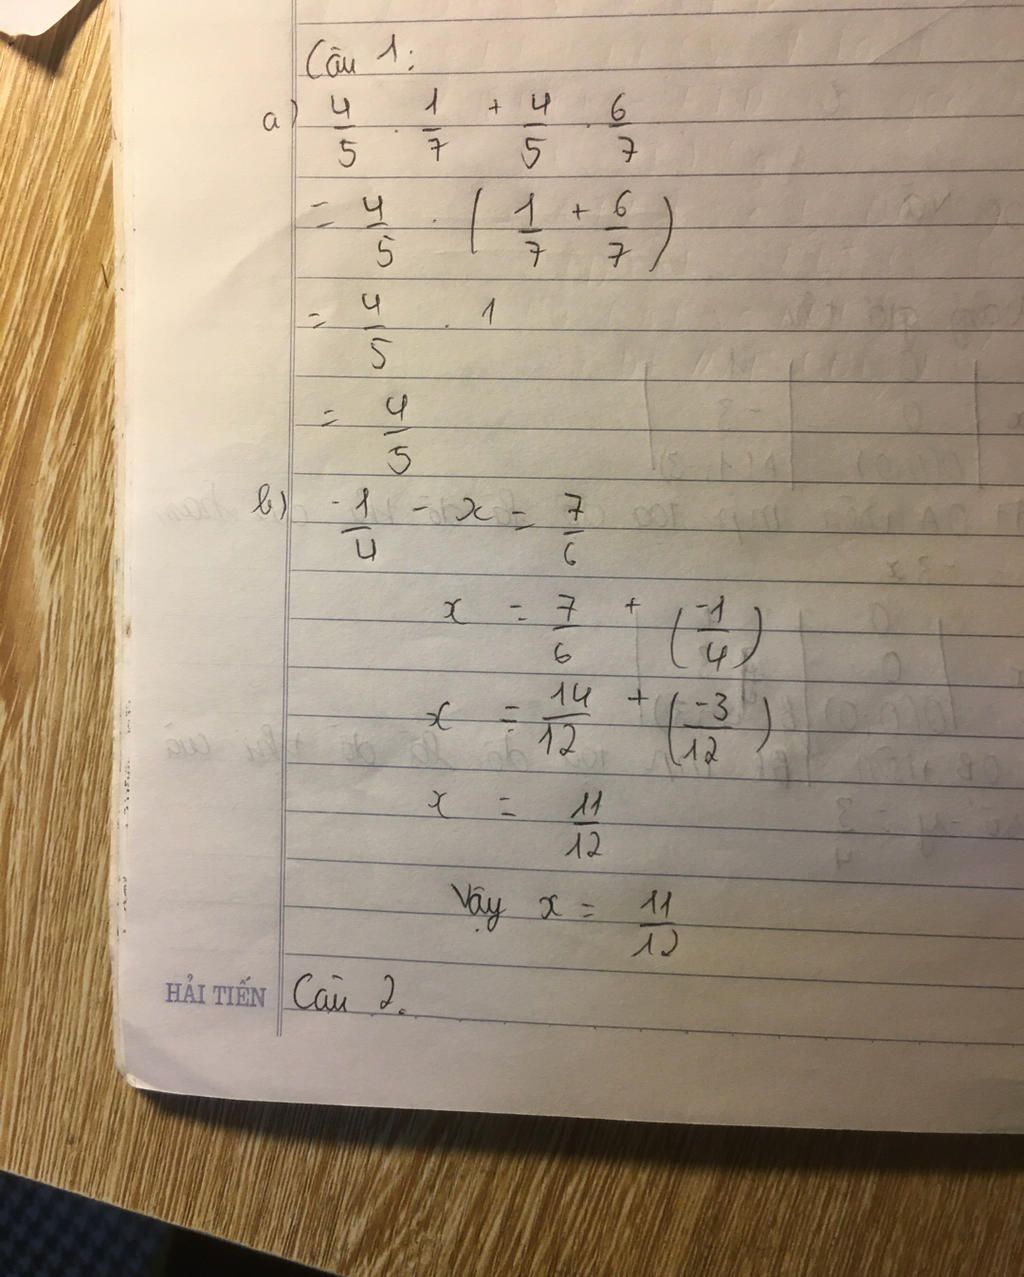 Câu 1:
a) 4/5 . 1/7 + 4/5 . 6/7
= 4/5 . (1/7 + 6/7)
= 4/5 . 1
= 4/5
b) -1/4 - x = 7/6
x = 7/6 + (-1/4)
x = 14/12 + (-3/12)
x = 11/12
Vậy x = 11/12
HẢI TIẾN
Câu 2.